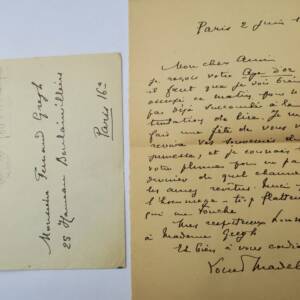 Monsieur Fernand Gregh
25 Hameau Boulainvilliers
Paris 16e
Paris 2 Juin
Mon cher Ami
Je reçois votre Age d'or
il faut que je sois bien
occupé ce matin pour
pas déjà succombé à la
tentation de lire. Je
fais une fête de vous
revivre vos souvenirs de
jeunesse, et je connais
votre plume pour
dernier de quel charme
les aurez revêtus. Merci
l'hommage
qui me touche
Mes respectueux hommages
à Madame Gregh
Et bien à vous
Louis Madelin